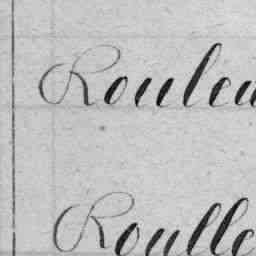 Rouleu
Roulle